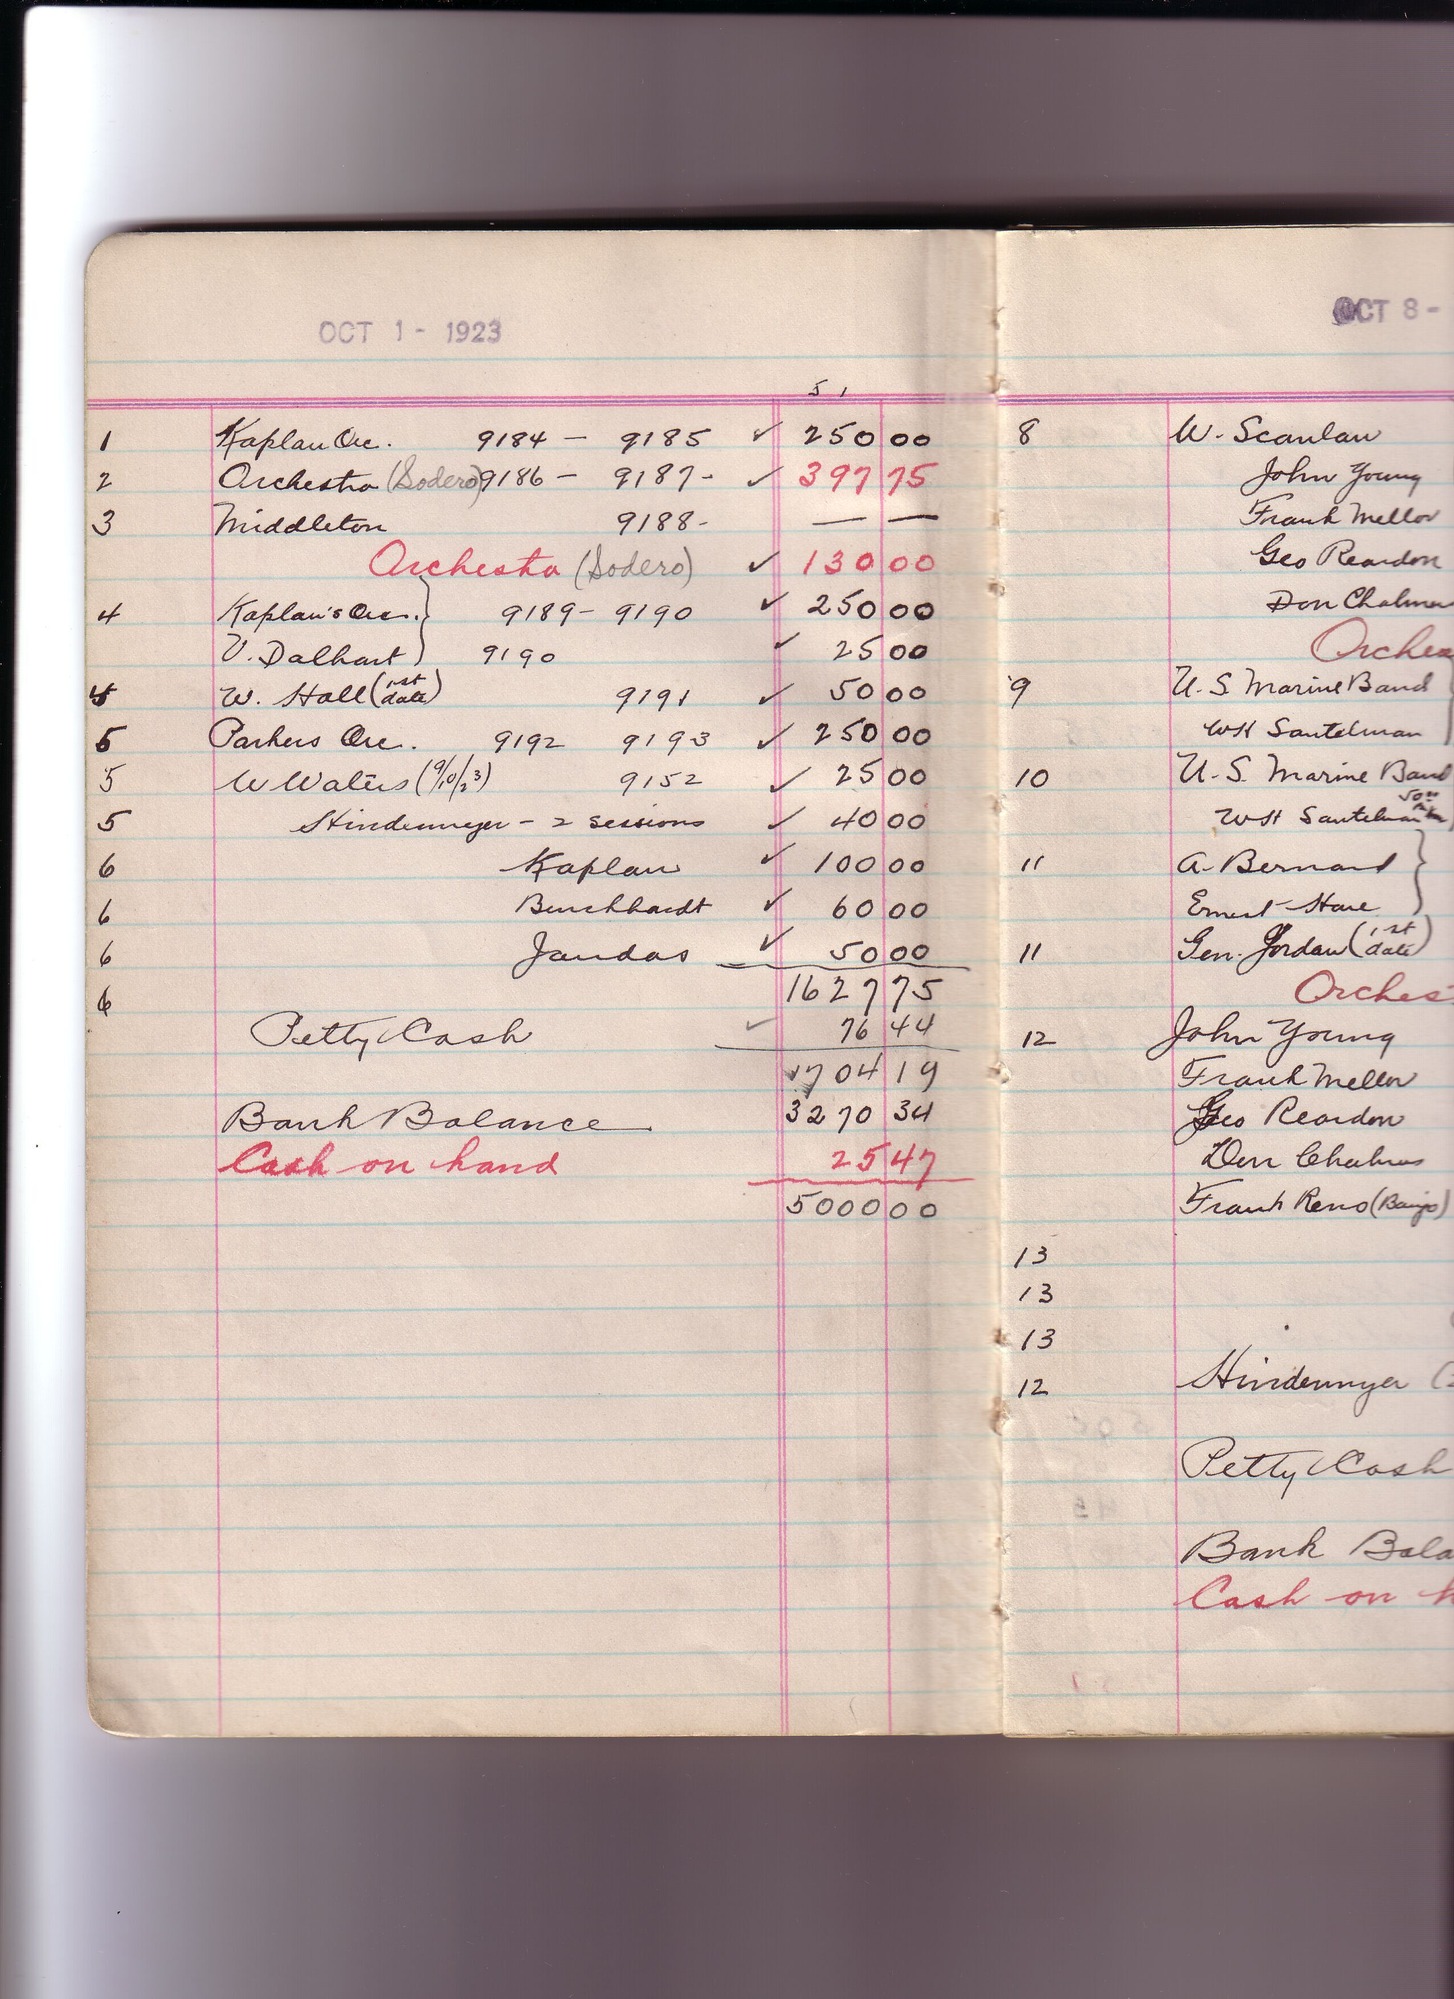 OCT 1 - 1923
5 1
1 Kaplan Orc. 9184 - 9185 ✓ 250 00
2 Orchestra (Sodero) 9186 - 9187 - ✓ 397 75
3 Middleton 9188 - — —
Orchestra (Sodero) ✓ 130 00
4 Kaplan's Orc. } 9189 - 9190 ✓ 250 00
V. Dalhart } 9190 ✓ 25 00
W. Hall (1st date) 9191 ✓ 50 00
5 Parkers Orc. 9192 9193 ✓ 250 00
5 W Waters (9/10/23) 9152 ✓ 25 00
5 Hindermyer - 2 sessions ✓ 40 00
6 Kaplan ✓ 100 00
6 Burckhardt ✓ 60 00
6 Jandas ✓ 50 00
6 1627 75
Petty Cash ✓ 76 44
1704 19
Bank Balance 3270 34
Cash on hand 25 47
5000 00
OCT 8 -
8 W. Scanlan
John Young
Frank Mellor
Geo Reardon
Don Chalmer
Orches
9 U. S. Marine Band
WH Santelman
10 U. S. Marine Band
WH Santelman
11 A. Bernard }
Ernest Hare }
11 Gen. Jordan (1st date)
Orches
12 John Young
Frank Mellor
Geo Reardon
Don Chalmers
Frank Reno (Banjo)
13
13
13
12 Hindermyer (2
Petty Cash
Bank Bala
Cash on h